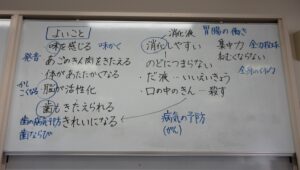 よいこと
味を感じる 味かく
発音 あごのきん肉をきたえる
体があたたかくなる
脳が活性化
歯もきたえられる
歯の病気予防 きれいになる
歯ならび
消化液 胃腸の働き
消化しやすい 集中力 全力投球
のどにつまらない ねむくならない
だ液…いいえいきょう
口の中のきん…殺す
病気の予防
(がん)